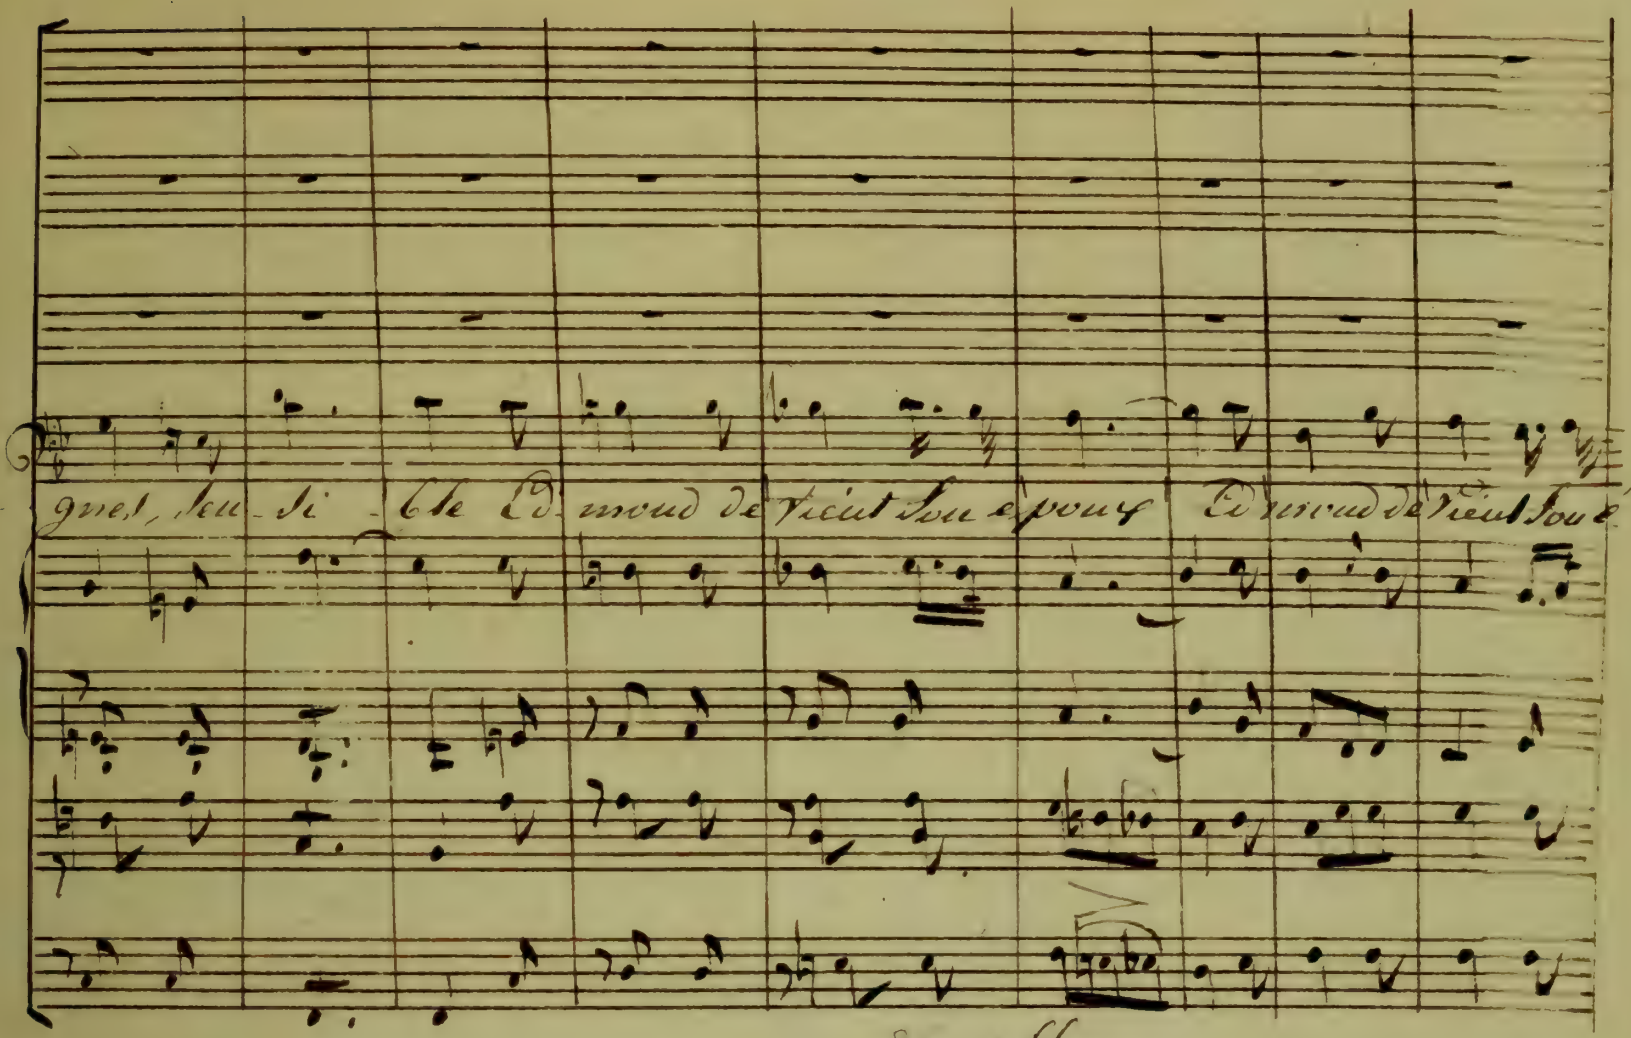 gnes, sen - si - ble Ed - mond de vient son e poux Ed mond de vient son e